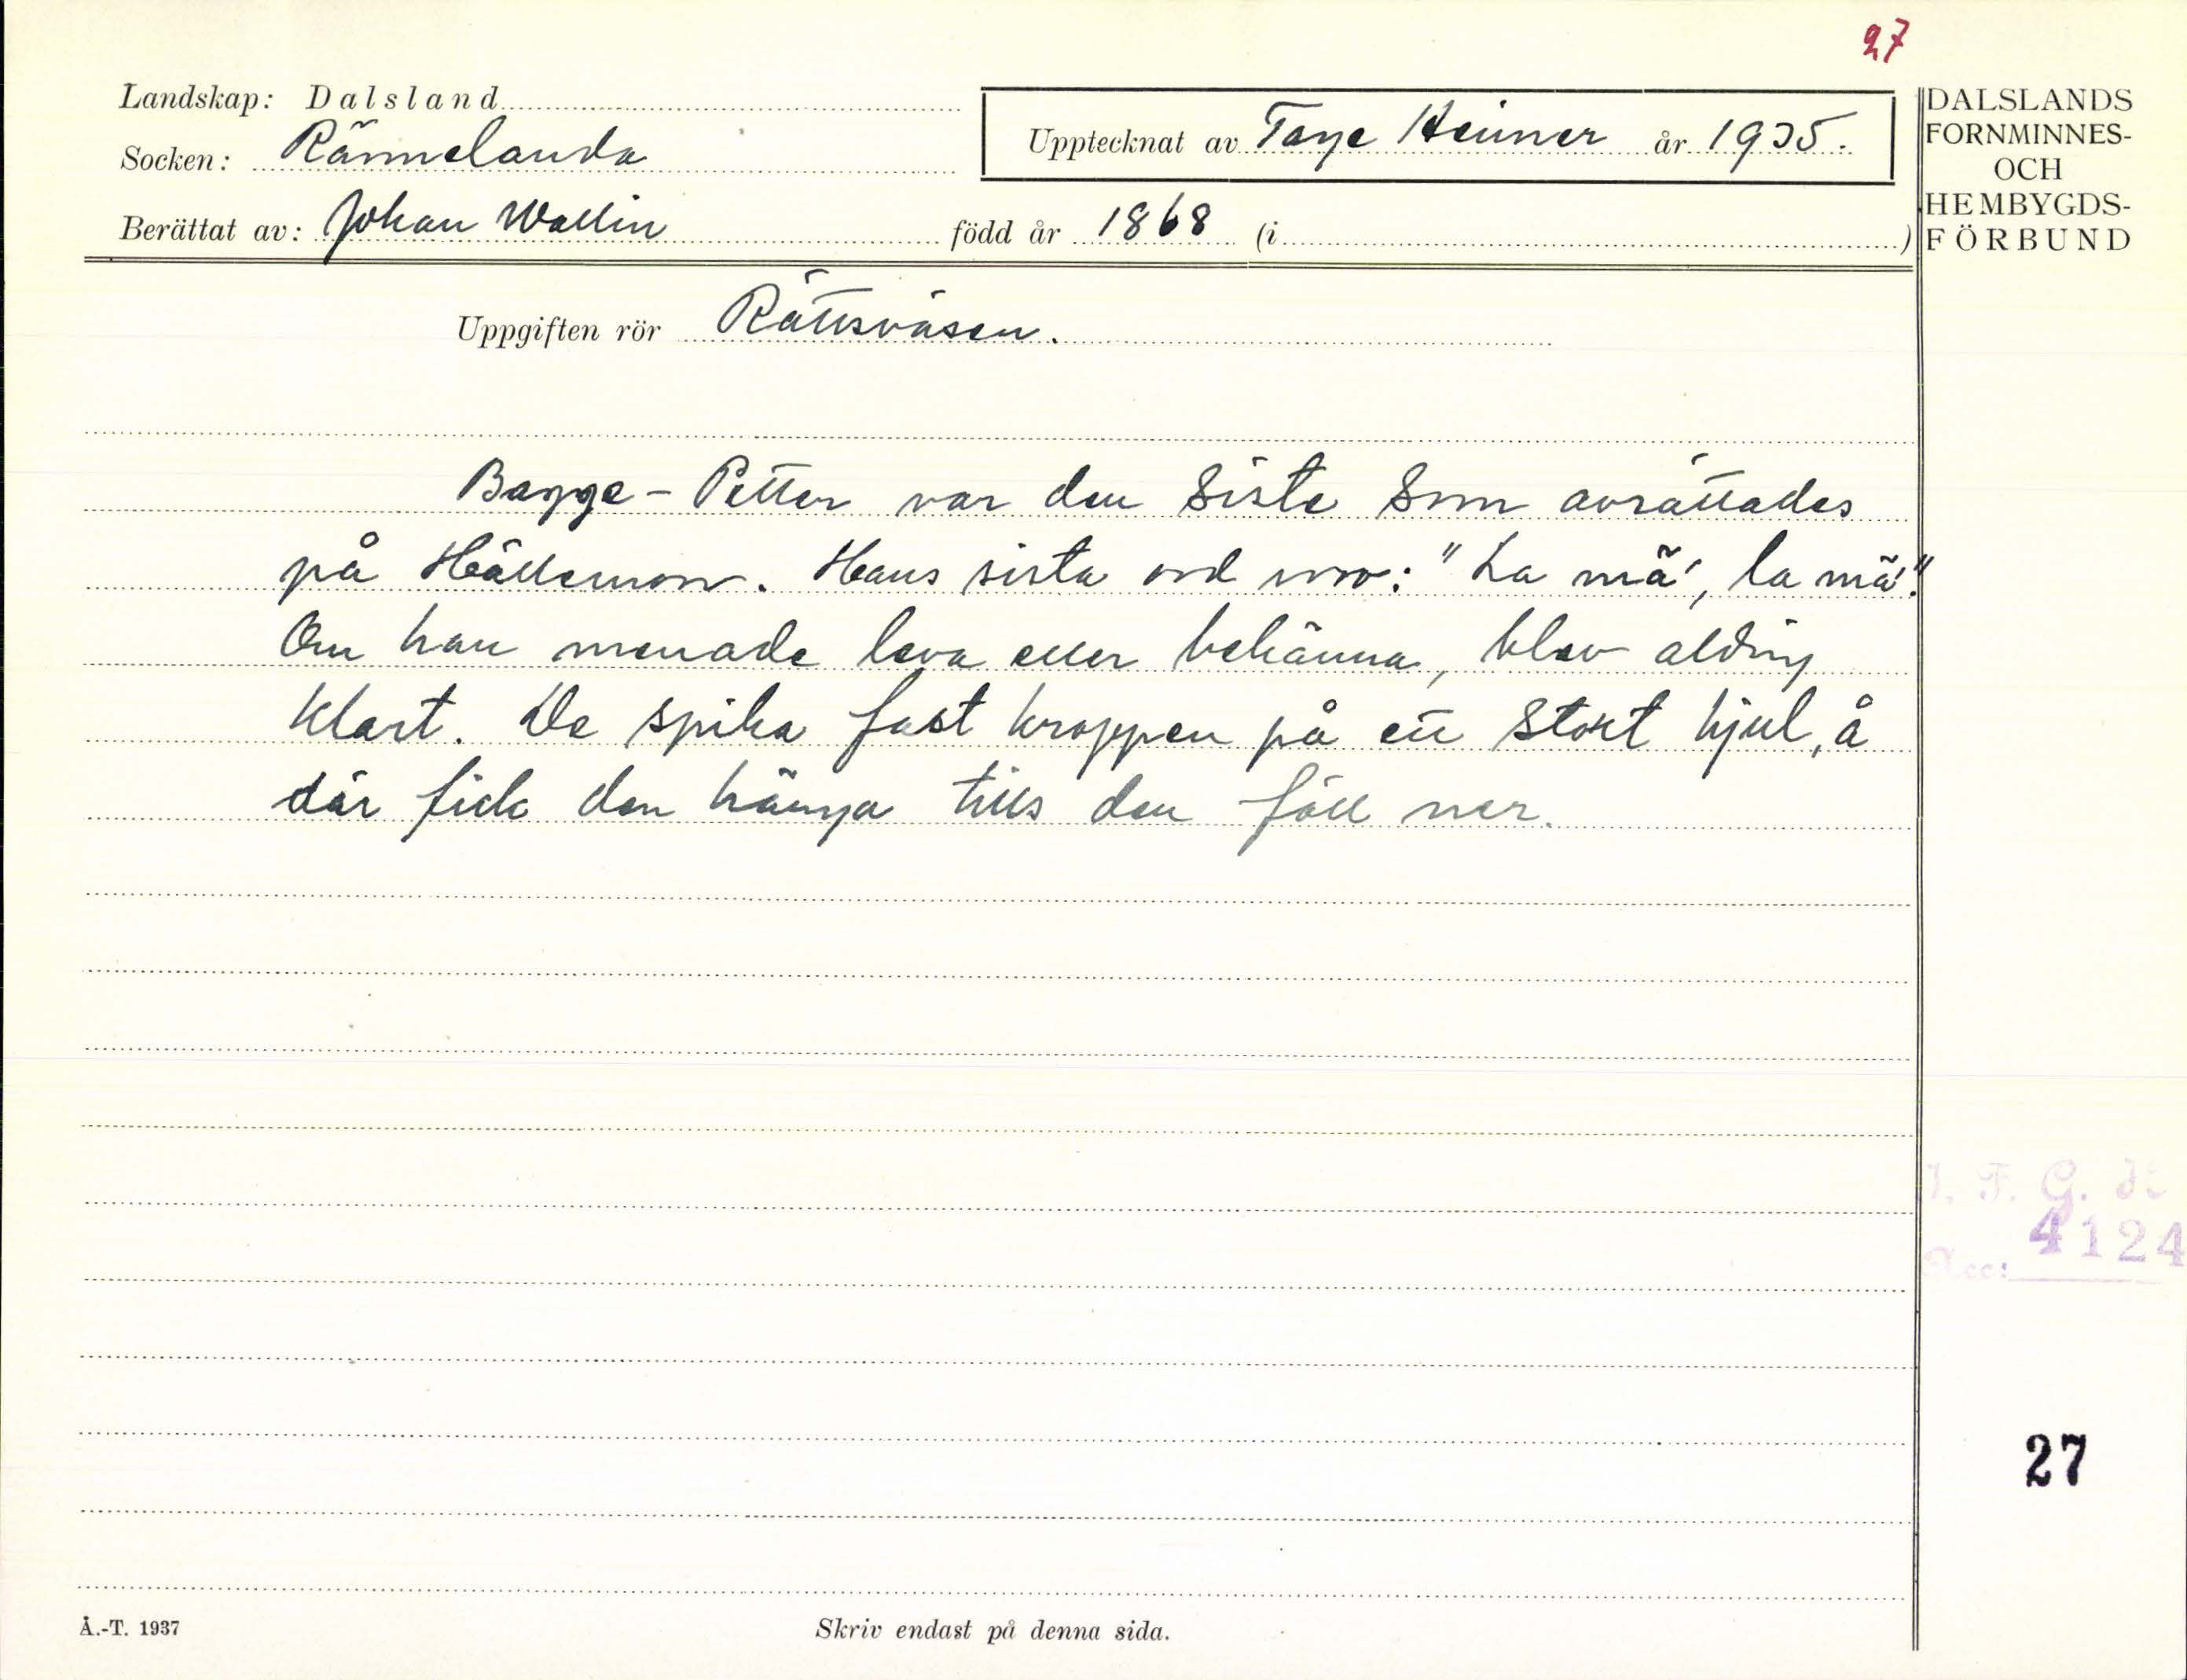 27
Landskap: Dalsland
Socken: Rännelanda
Berättat av: Johan Wallin född år 1868 (i )
Upptecknat av Tage Heimer år 1935.
DALSLANDS
FORNMINNES-
OCH
HEMBYGDS-
FÖRBUND
Uppgiften rör Rättsväsen.
Bagge-Petter var den siste som avrättades
på Hällemon. Hans sista ord vor: "La mä', la mä'."
Om han menade leva eller bekänna, blev aldrig
klart. De spika fast kroppen på ett stort hjul, å
där fick den hänga tills den föll ner.
I. F. G. ds
Acc: 4124
27
Å.-T. 1937
Skriv endast på denna sida.